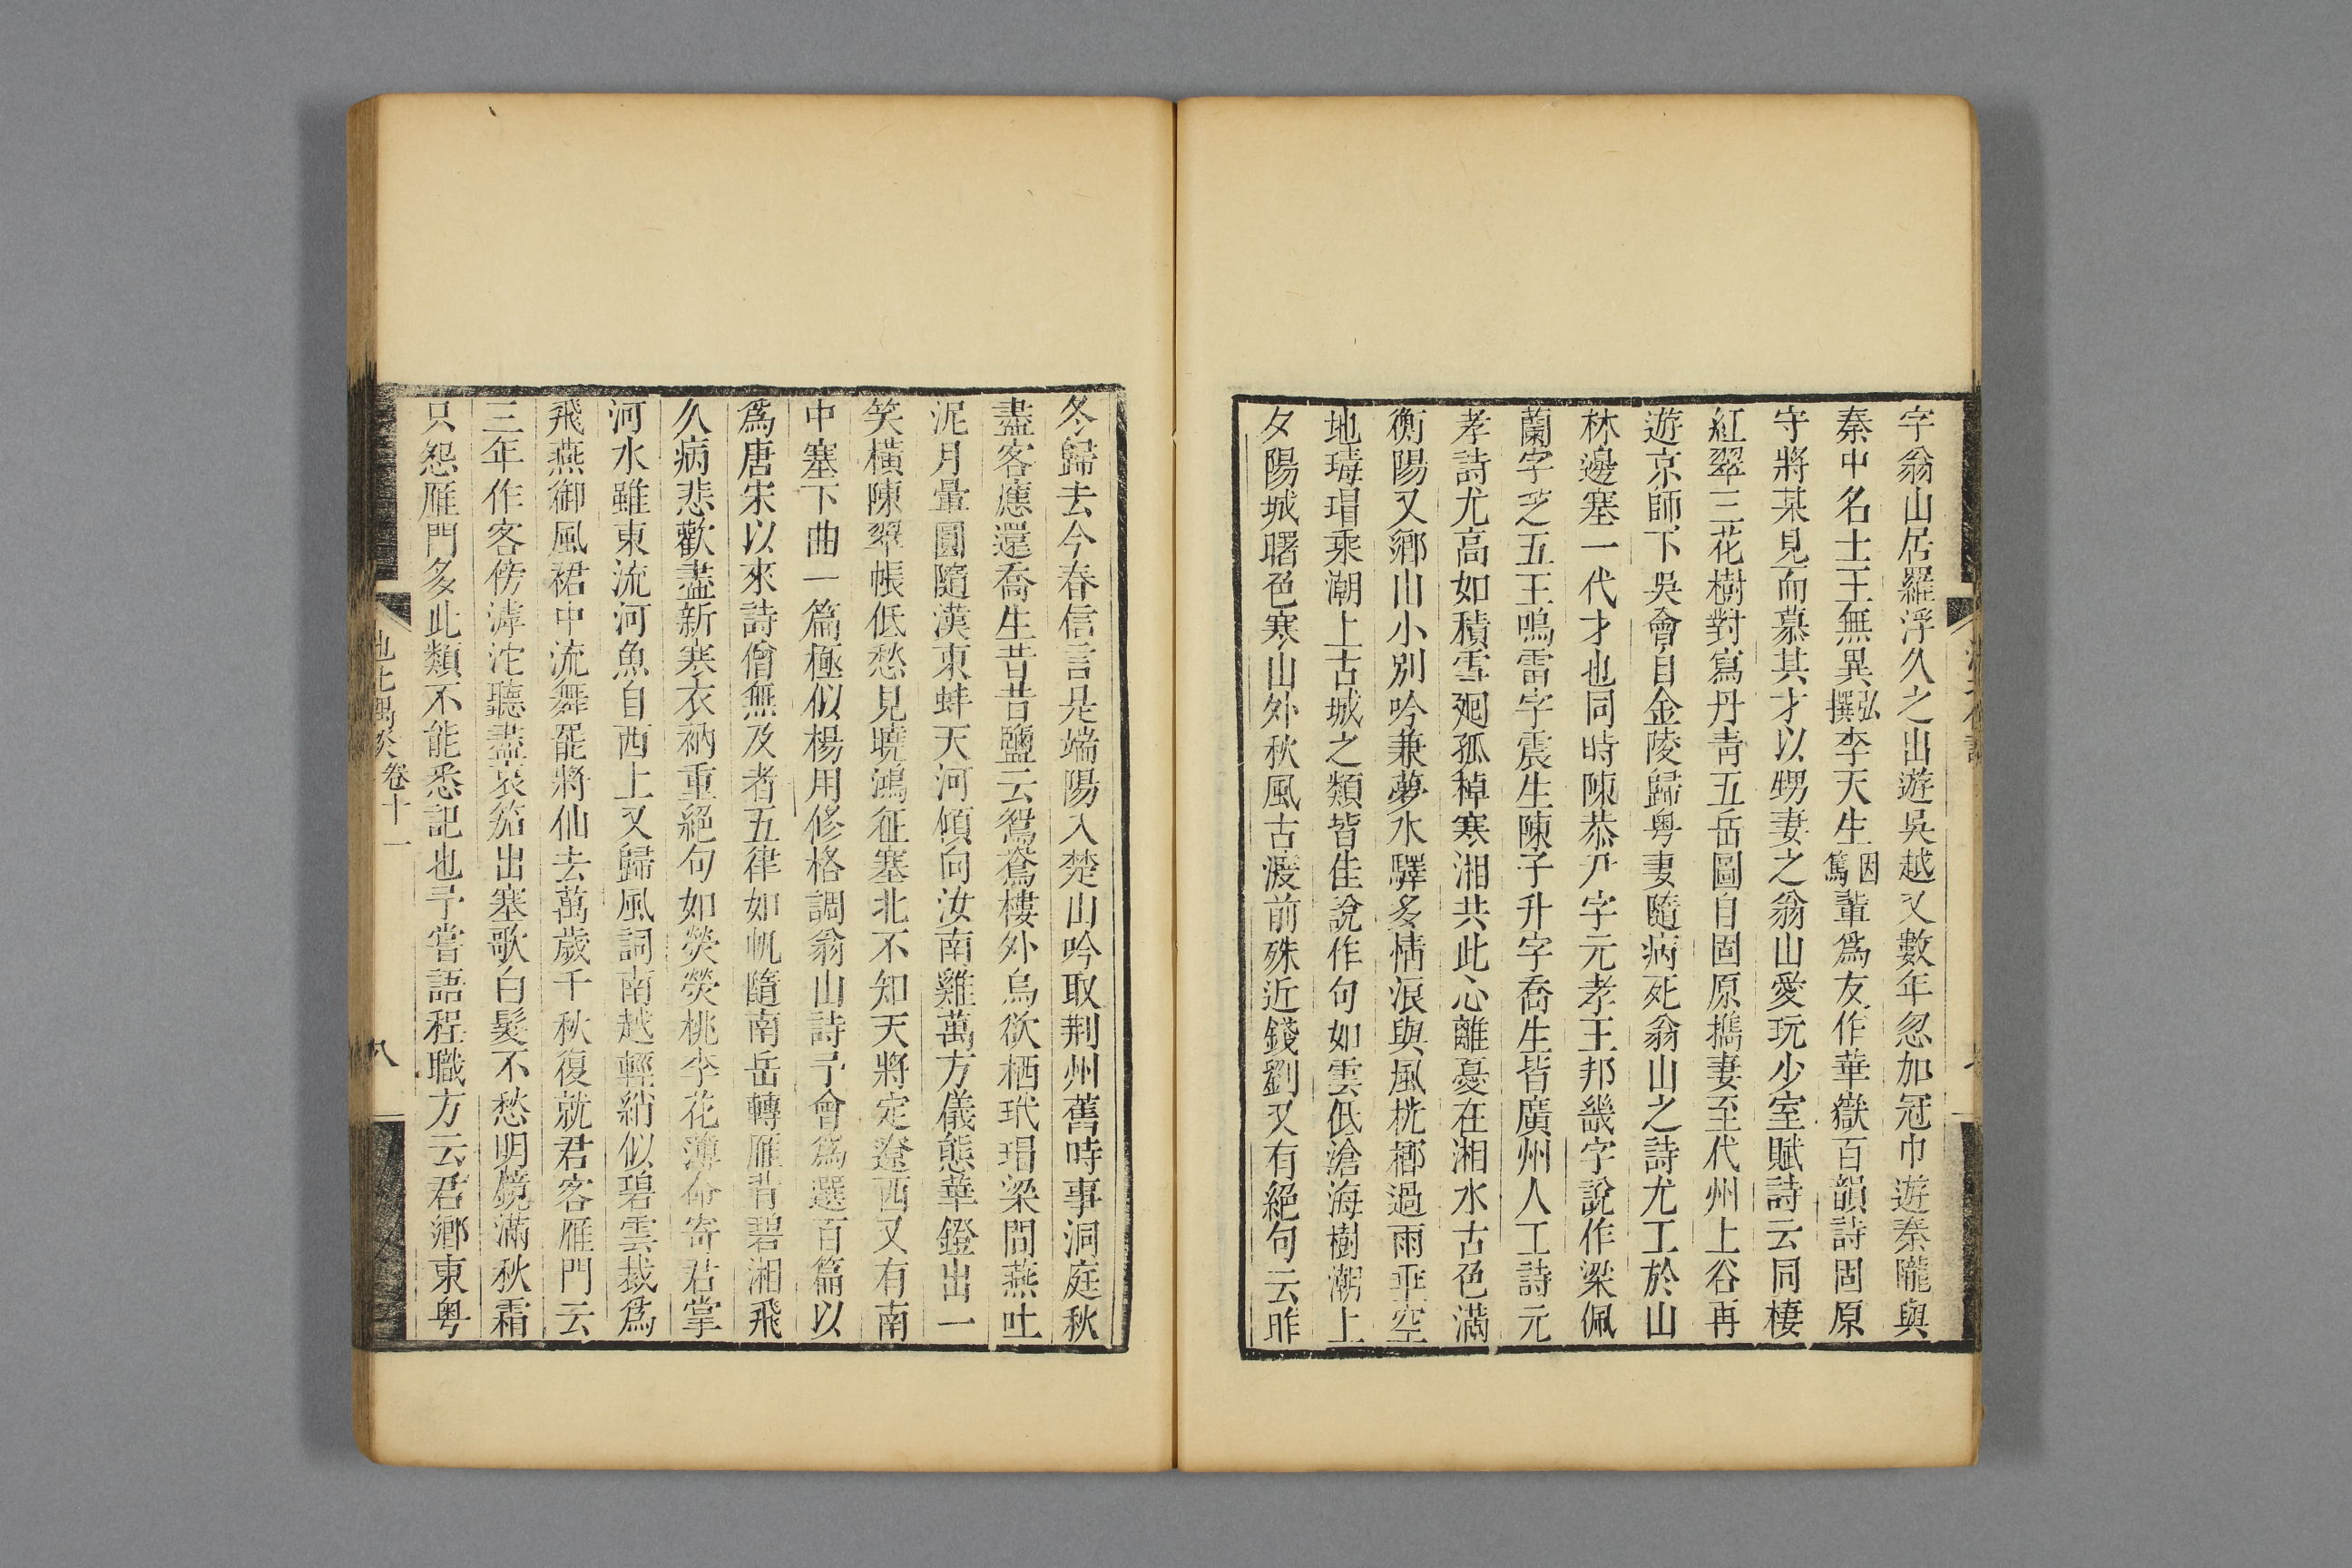 字翁山居羅浮久之出遊吳越又數年忽加冠巾遊秦隴與
秦中名士王無異弘撰李天生因篤輩爲友作華嶽百韻詩固原
守將某見而慕其才以甥妻之翁山愛玩少室賦詩云同棲
紅翠三花樹對寫丹青五岳圖自固原攜妻至代州上谷再
遊京師下吳會自金陵歸粤妻隨病死翁山之詩尤工於山
林邊塞一代才也同時陳恭尹字元孝王邦畿字說作梁佩
蘭字芝五王鳴雷字震生陳子升字喬生皆廣州人工詩元
孝詩尤高如積雪廻孤棹寒湘共此心離憂在湘水古色滿
衡陽又鄉山小別吟兼夢水驛多情浪與風桄榔過雨垂空
地瑇瑁乘潮上古城之類皆佳說作句如雲低滄海樹潮上
夕陽城曙色寒山外秋風古渡前殊近錢劉又有絕句云昨
冬歸去今春信言是端陽入楚山吟取荆州舊時事洞庭秋
盡客應還喬生昔昔鹽云鴛鴦樓外烏欲栖玳瑁梁間燕吐
泥月暈圓隨漢東蚌天河傾向汝南雞萬方儀態華鐙出一
笑橫陳翠帳低愁見曉鴻征塞北不知天將定遼西又有南
中塞下曲一篇極似楊用修格調翁山詩予會爲選百篇以
爲唐宋以來詩僧無及者五律如帆隨南岳轉雁背碧湘飛
久病悲歡盡新寒衣衲重絕句如熒熒桃李花薄命寄君掌
河水雖東流河魚自西上又歸風詞南越輕綃似碧雲裁爲
飛燕御風裙中流舞罷將仙去萬歲千秋復就君客雁門云
三年作客傍滹沱聽盡哀笳出塞歌白髮不愁明鏡滿秋霜
只怨雁門多此類不能悉記也予嘗語程職方云君鄉東粤
池北偶談 卷十一 八